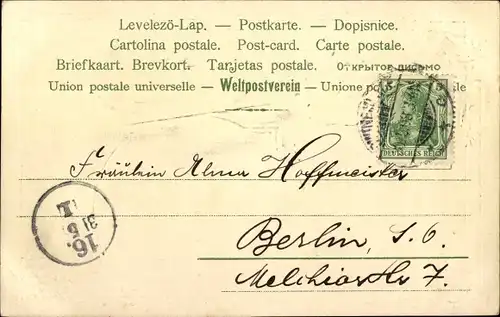 Levelezö-Lap. — Postkarte. — Dopisnice.
Cartolina postale. Post-card. Carte postale.
Briefkaart. Brevkort. Tarjetas postale. Открытое письмо
Union postale universelle — Weltpostverein — Unione po le
5 5
DEUTSCHES REICH
Fräulein Alma Hoffmeister
Berlin, S. O.
Melchiorstr 7.
16.
31 5